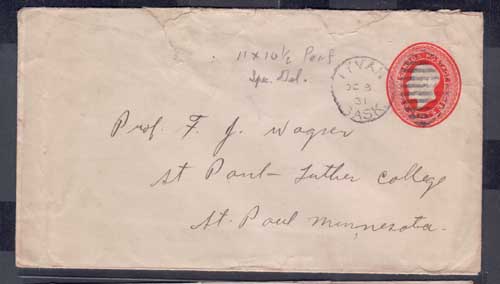 11 x 10 1/2 Perf
Spe. Del.
TYVAN
DE 8
31
SASK.
Prof. F. J. Wagner
St Paul-Luther College
St. Paul Minnesota.